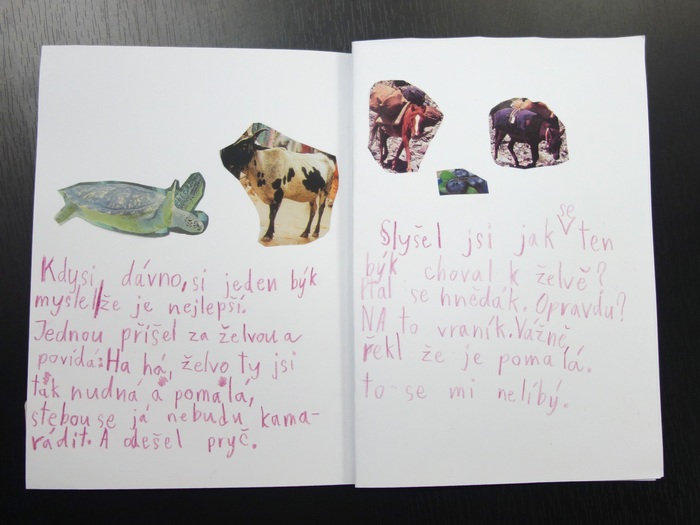 Kdysi dávno, si jeden býk
myslel že je nejlepší.
Jednou přišel za želvou a
povídá: Ha há, želvo ty jsi
tak nudná a pomalá,
stebou se já nebudu kama-
rádit. A odešel pryč.
Slyšel jsi jak se ten
býk choval k želvě?
ptal se hnědák. Opravdu?
NA to vraník. Vážně,
řekl že je pomalá.
to se mi nelíbý.